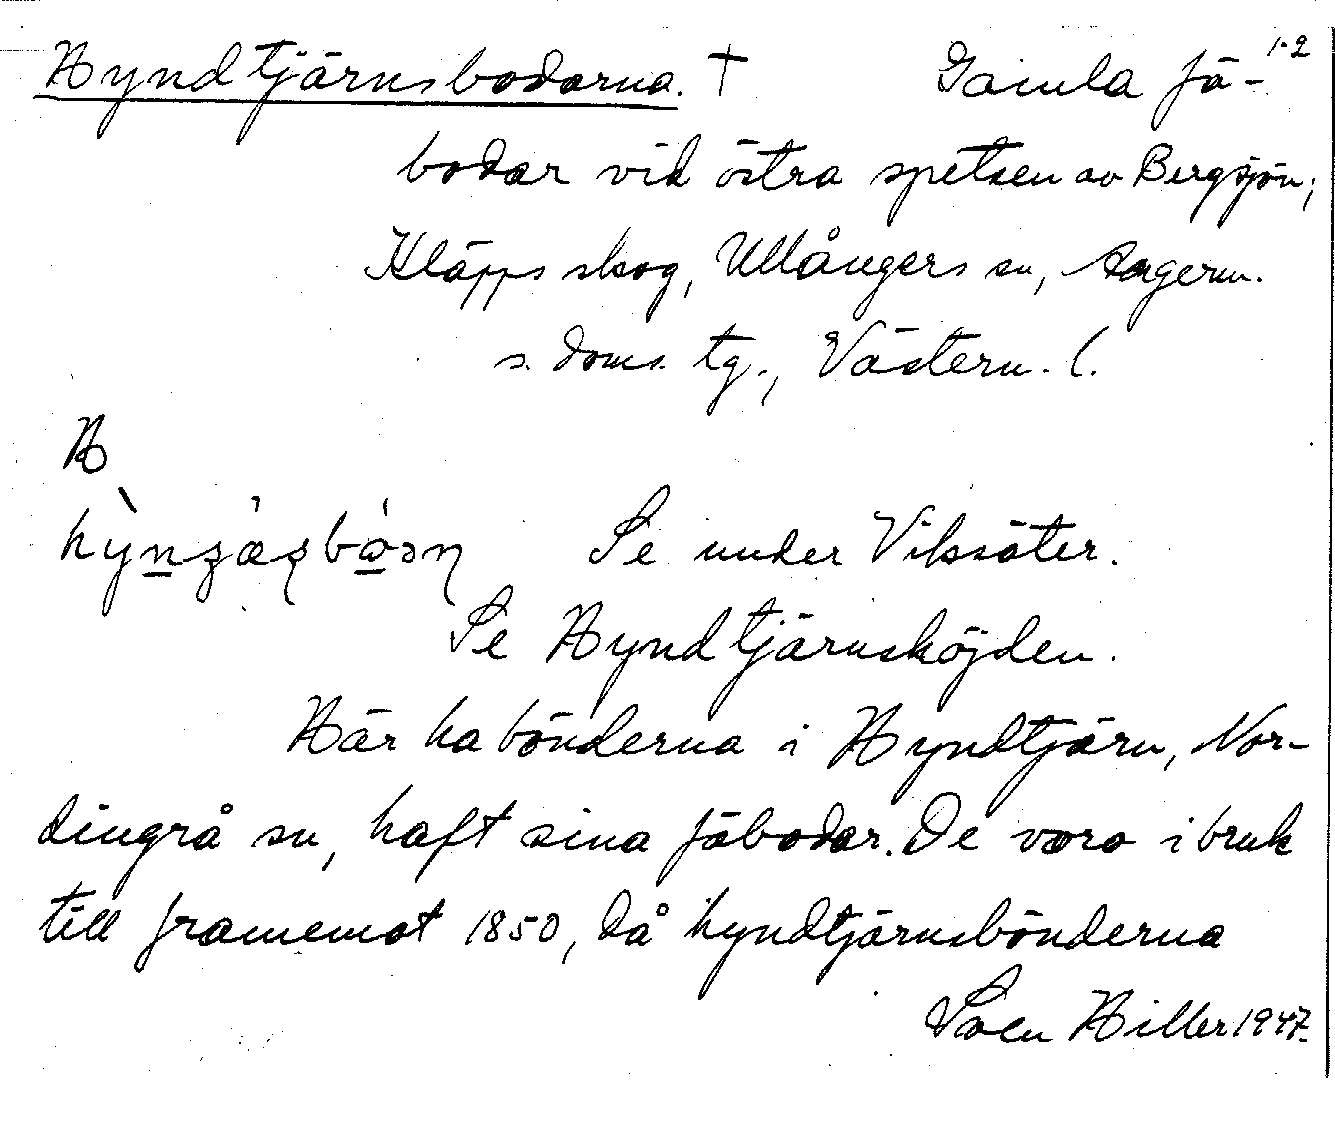 Hyndtjärnsbodarna. † Gamla fä- 1-2
bodar vid östra spetsen av Bergsjön,
Kläpps skog, Ullångers sn, Angerm.
s. doms. tg., Västern. l.
H
Se under Viksäter.
Se Hyndtjärnshöjden.
Här ha bönderna i Hyndtjärn, Nor-
dingrå sn, haft sina fäbodar. De voro i bruk
till framemot 1850, då hyndtjärnsbönderna
Sven Hiller 1947.